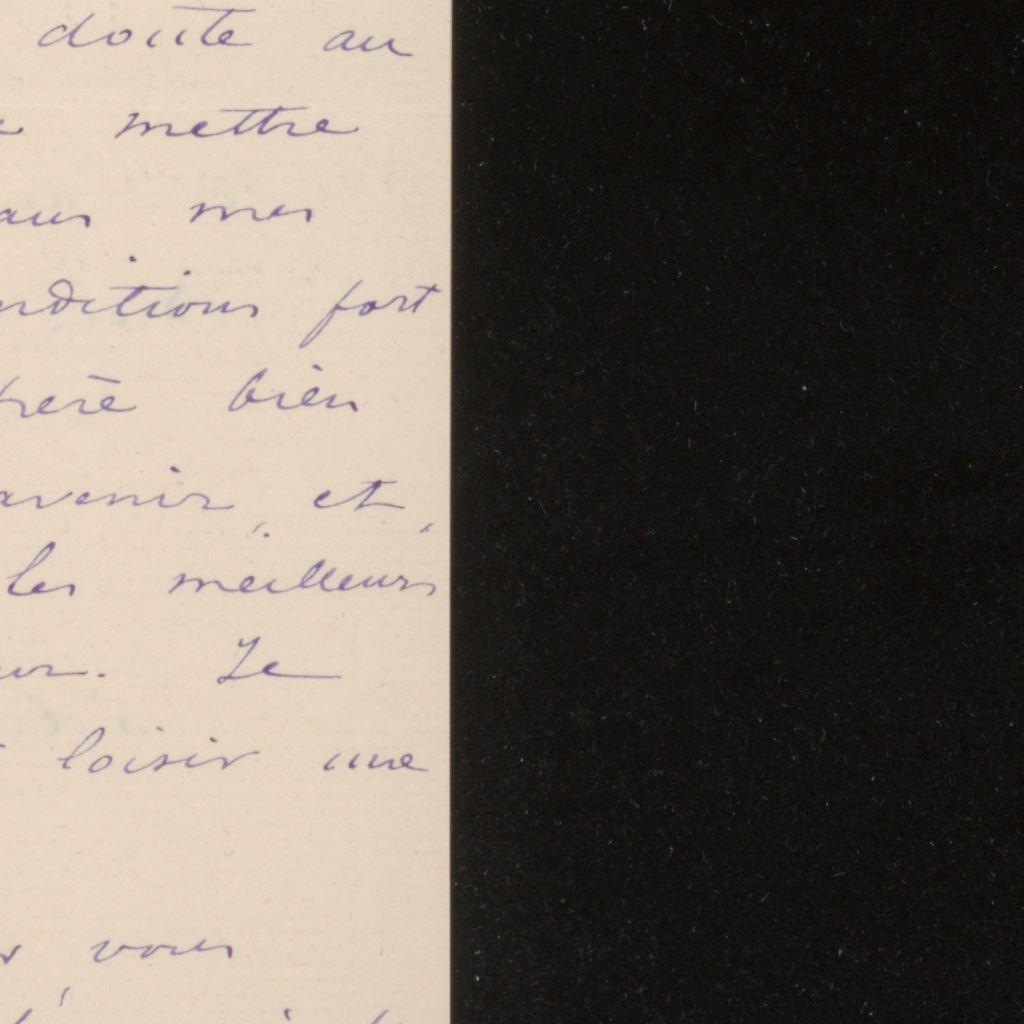 doute au
mettre
mes
nditions fort
bien
avenir, et,
les meilleurs
Je
loisir une
vous